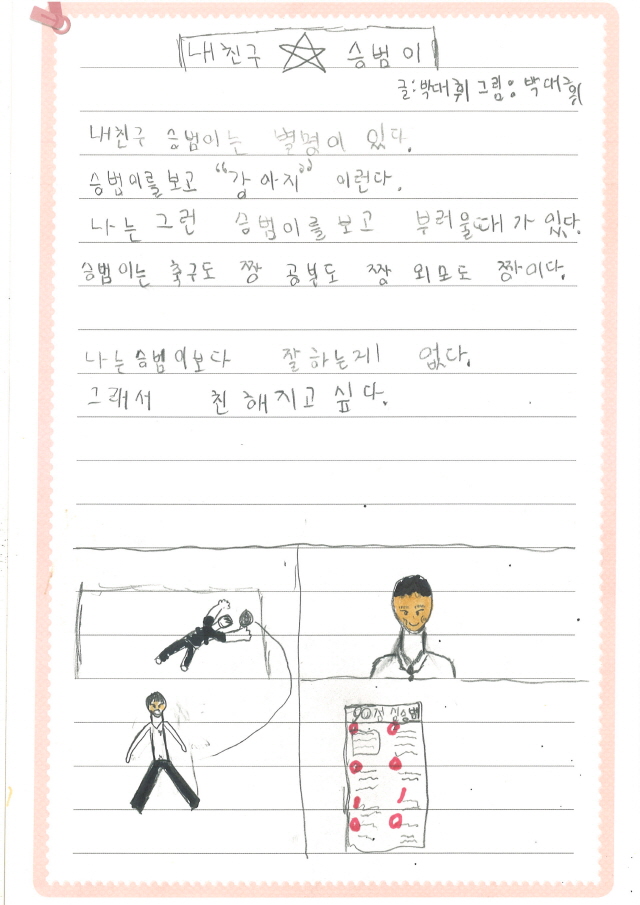 내친구 ☆ 승범이
글:박대휘 그림: 박대휘
내친구 승범이는 별명이 있다.
승범이를보고 "강아지" 이런다.
나는그런 승범이를보고 부러울때가 있다.
승범이는 축구도 짱 공부도 짱 외모도 짱이다.
나는승범이보다 잘하는게 없다.
그래서 친해지고싶다.
90점 심승범